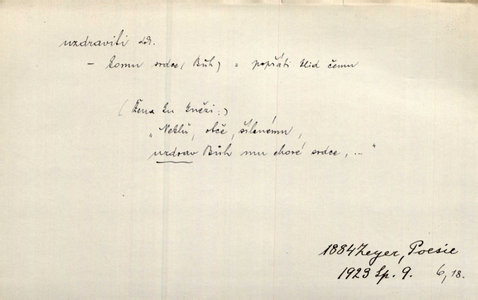 uzdraviti dok.
– komu srdce (Bůh) = popřáti klid čemu
(Žena ku knězi:)
„Neklň, otče, šílenému,
uzdrav Bůh mu choré srdce, ..."
1884 Zeyer, Poesie
1923 Sp. 9. 6, 18.